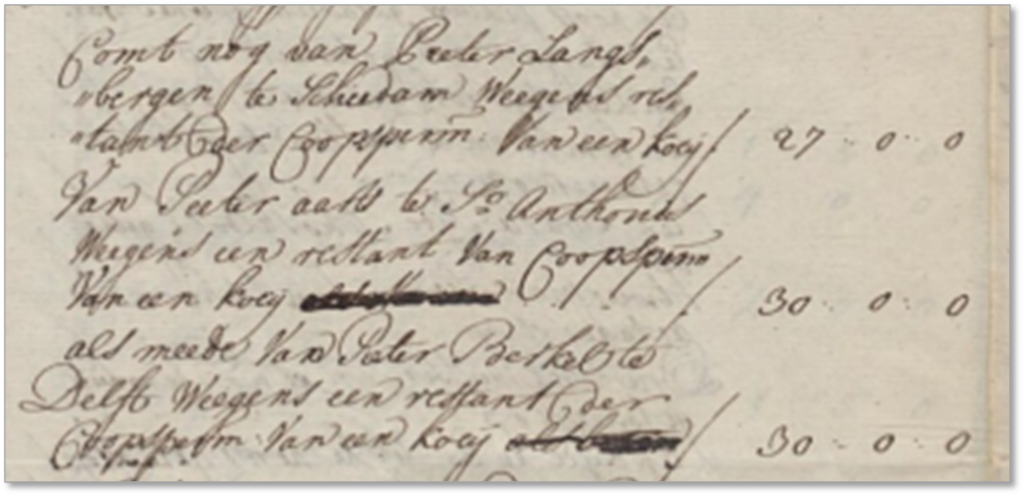 Comt nog van Pieter Langs„
„bergen te Schiedam Weegens res„
„tant der Coopspenn: Van een koeij / 27 .. 0 .. 0
Van Pieter aarts te St. Anthonis
Weegens een restant Van Coopspenn
Van een koeij / 30 .. 0 .. 0
als meede Van Pieter Berkel te
Delft Weegens een restant der
Coopspenn: Van een koeij / 30 .. 0 .. 0